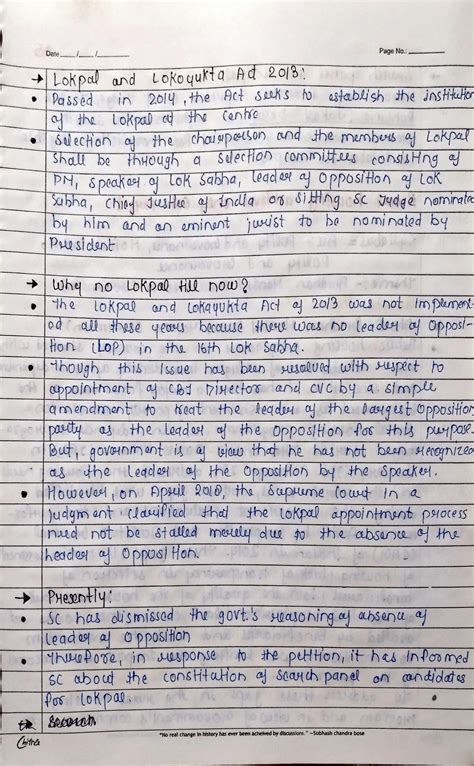 Date ___/___/___ Page No.: ______
→ Lokpal and Lokayukta Act 2013:
• Passed in 2014, the Act seeks to establish the institution
of the Lokpal at the Centre
• Selection of the chairperson and the members of Lokpal
shall be through a selection committees consisting of
PM, speaker of Lok Sabha, leader of Opposition of Lok
Sabha, Chief Justice of India or sitting SC Judge nominated
by him and an eminent jurist to be nominated by
President
→ Why no Lokpal till now?
• The Lokpal and Lokayukta Act of 2013 was not implement-
ed all these years because there was no leader of Opposi-
tion (LOP) in the 16th Lok Sabha.
• Though this issue has been resolved with respect to
appointment of CBI Director and CVC by a simple
amendment to treat the leader of the largest Opposition
party as the leader of the Opposition for this purpose.
But, government is of view that he has not been recognized
as the Leader of the Opposition by the Speaker.
• However, on April 2018, the Supreme Court in a
judgment clarified that the Lokpal appointment process
need not be stalled merely due to the absence of the
leader of Opposition.
→ Presently:
• SC has dismissed the govt.'s reasoning of absence of
leader of Opposition
• Therefore, in response to the petition, it has informed
SC about the constitution of search panel on candidates
for Lokpal.
→ Search
Chitra
"No real change in history has ever been acheived by discussions." –Subhash chandra bose